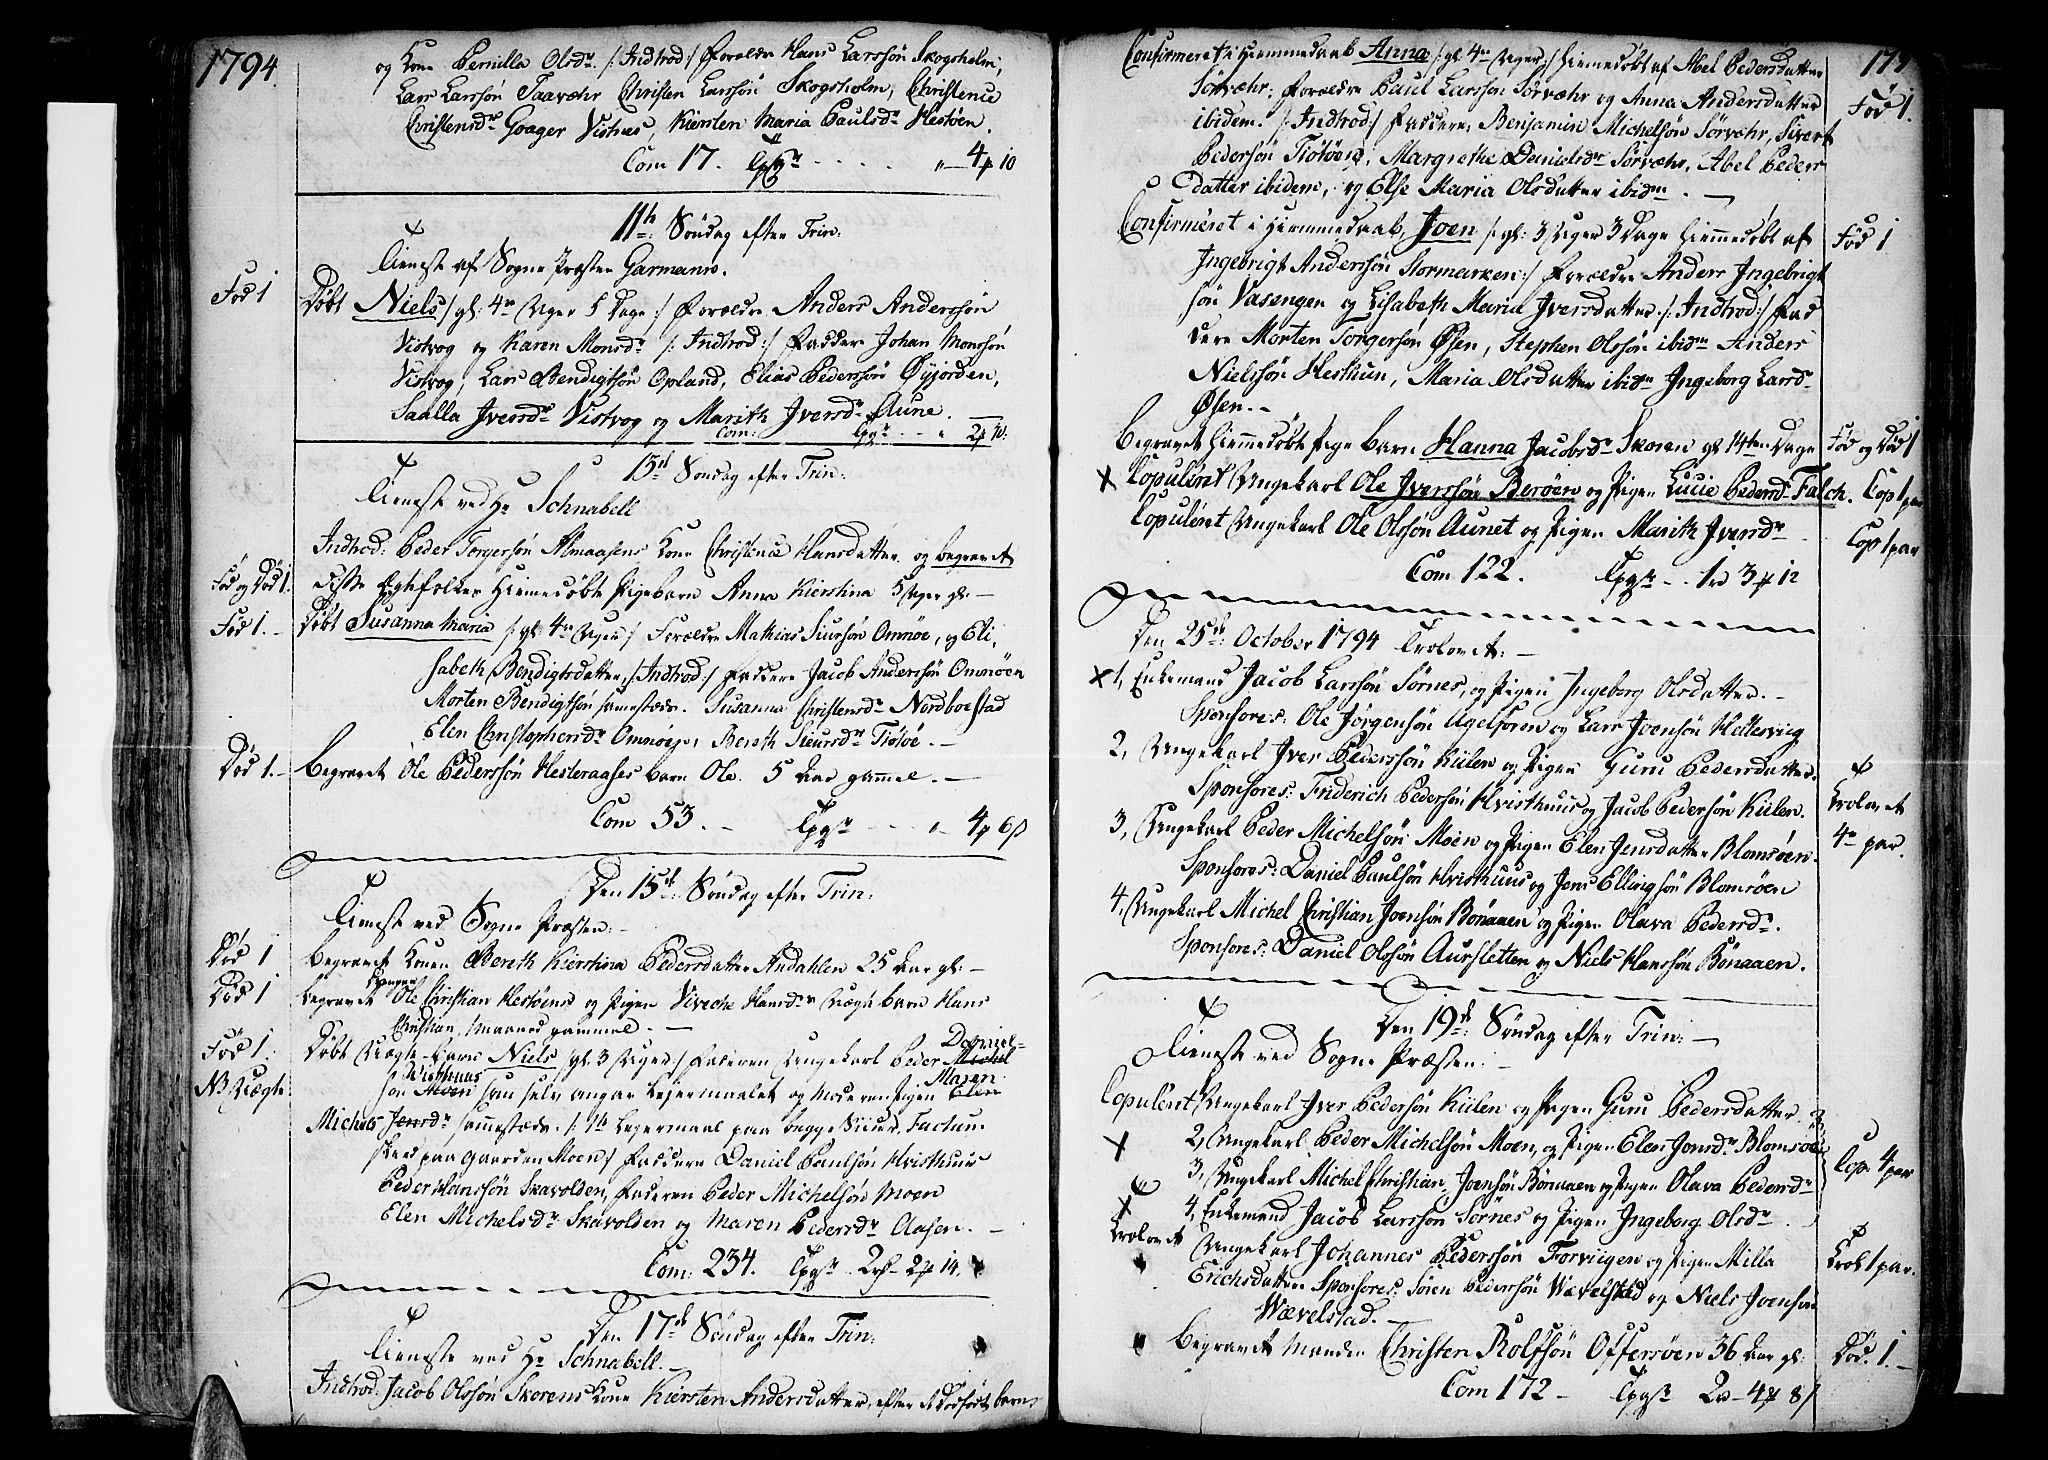 1794.
og Kone Pernilla Olsdr. /: Indtrod :/ Forældre Hans Larssøn Skogsholm,
Lars Larssøn Taavær Christen Larssøn Skogsholm, Christence
Christensdr. Goager Vistnes, Kiersten Maria Paulsdr. Hestøen.
Com 17. Cpgr - - - - - " - 4 10
11te Søndag efter Trin:
Tieneste af Sogne Præsten Garmann.
Fød 1
Døbt Niels /: gl: 4re Uger 5 Dage :/ Forældre Anders Anderssøn
Vistvog og Karen Monsdr. /: Indtrod :/ Faddere Johan Monssøn
Vistvog, Lars Bendigtsøn Opland, Elias Pederssøn Øyjorden,
Saalla Iversdr. Vistvog og Marith Iversdr. Aune.
Com: Cpgr - - 2 10:
13de Søndag efter Trin:
Tieneste ved Hr Schnabell
Indtrod: Peder Torgersøn Almaasens Kone Christence Hansdatter og begravet
Fød og Død 1.
disse Egtefolkes Hiemmedøbte Pigebarn Anna Kierstina 5 Uger gl: -
Fød 1. -
Døbt Susanna Maria /: gl: 4re Uger :/ Forældre Mathias Siursøn Omnøe, og Eli,
sabeth Bendigtsdatter, /: Indtrod :/ Faddere Jacob Anderssøn Omnøen
Morten Bendigtsøn samestæds. Susanna Christensdr. Nordboestad
Elen Christophersdr. Omnøe, Bereth Siursdr. Tiøtøe. -
Død 1. -
Begravet Ole Pederssøn Hesteraases barn Ole. 5 Aar gammel. -
Com 53. - Cpgr - - - " - 4 6 ß
Den 15de Søndag efter Trin:
Tieneste ved Sogne Præsten. -
Død 1
Begravet Konen Bereth Kierstina Pedersdatter Andahlen 25 Aar gl: -
Død 1
Begravet Ole Christian Hestøens og Pigen Viveche Hansdr. Uægte barn Hans
Christian, maaned gammel. -
Fød 1.
Døbt Uægte-barn Niels /: gl: 3 Uger :/ Faderen Ungekarl Peder Daniel- Michel
NB Uægte
søn Visthuus Moen som selv angav Leiermaalet og Moderen Pigen Maren Elen
Michels Jensdr. sammestæds. /: 1te Leiermaal paa begge Sider, Factum
skeed paa gaarden Moen :/ Faddere Daniel Paulsøn Kvisthuus
Peder Hanssøn Skavolden, Faderen Peder Michelsøn Moen
Elen Michelsdr. Skavolden og Maren Pedersdr. Aasen. -
Com: 234. Cpgr. 2 - 2 14.
Den 17de Søndag efter Trin:
Tieneste ved Hr Schnabell. -
Indtrod: Jacob Olssøn Skorens Kone Kiersten Andersdatter, efter et Dødfødt barn
179
Confirmeret i Hiemmedaab Anna /: gl: 4re Uger :/ Hiemmedøbt af Abel Pedersdatter
Sørvær, Forældre Paul Larssøn Sørvær og Anna Andersdatter
Fød 1.
ibidem. /: Indtrod :/ Faddere: Benjamin Michelsøn Sørvær, Sivert
Pedersøn Tiøtøen, Margrethe Danielsdr. Sørvær, Abel Peders
datter ibidem, og Else Maria Olsdatter ibidm. -
Confirmeret i Hiemmedaab, Joen /: gl: 3 Uger 3 Dage Hiemmedøbt af
Fød 1
Ingebrigt Anderssøn Stormarken :/ Forældre Anders Ingebrigt
søn Vasengen og Lisabeth Maria Iversdatter. /: Indtrod :/ Fad
dere Morten Torgersøn Øsen, Stephen Olssøn ibidm Anders
Nielssøn Hesthun, Maria Olsdatter ibidm Ingeborg Larsd
Øsen. -
Begravet Hiemmedøbte Pige barn Hanna Jacobsdr. Skoren gl: 14ten Dage
Fød og Død 1
Copuleret Ungekarl Ole Iverssøn Berøen og Pigen Lucie Pedersd. Falch.
Cop 1 par
Copuleret Ungekarl Ole Olssøn Aunet og Pigen Marith Iversdr
Cop 1 par
Com 122. Cpgr. - - 1 3 12
Den 25de October 1794 Trolovet: -
1, Enkemand Jacob Larssøn Sørnes, og Pigen Ingeborg Olsdatter. -
Sponsores: Ole Jørgensøn Agelforen og Lars Joensøn Hellesviig
2, Ungekarl Iver Pederssøn Kiilen og Pigen Guru Pedersdatter.
Sponsores: Friderich Pedersøn Kvisthuus og Jacob Pedersøn Kiilen.
Trolovet
4re par.
3, Ungekarl Peder Michelsøn Moen og Pigen Elen Jensdatter Blomsøen.
Sponsores: Daniel Paulsøn Kvisthuus og Jens Ellingsøn Blomsøen
4, Ungekarl Michel Christian Joensøn Bønaaen og Pigen Olava Pedersdr.
Sponsores: Daniel Olssøn Aursletten og Niels Hanssøn Bønaaen.
Den 19de Søndag efter Trin: -
Tieneste ved Sogne Præsten. -
Copuleret Ungekarl Iver Pedersøn Kiilen og Pigen Guru Pedersdatter
2, Ungekarl Peder Michelsøn Moen, og Pigen Elen Jensdr. Blomsøe
3, Ungekarl Michel Christian Joensøn Bønaaen og Pigen Olava Pedersdr
Cop. 4 par
4, Enkemand Jacob Larssøn Sørnes og Pigen Ingeborg Olsdr
Trolovet
Ungekarl Johannes Pederssøn Forviigen og Pigen Milla
Trol 1 par.
Erichsdatter Sponsores: Søren Pederssøn Wævelstad og Niels Joensøn
Wævelstad. -
Begravet Manden Christen Rolfsøn Offersøen 36 Aar gl:
Død. 1. -
Com 172 - Cpgr 2 - 4 8